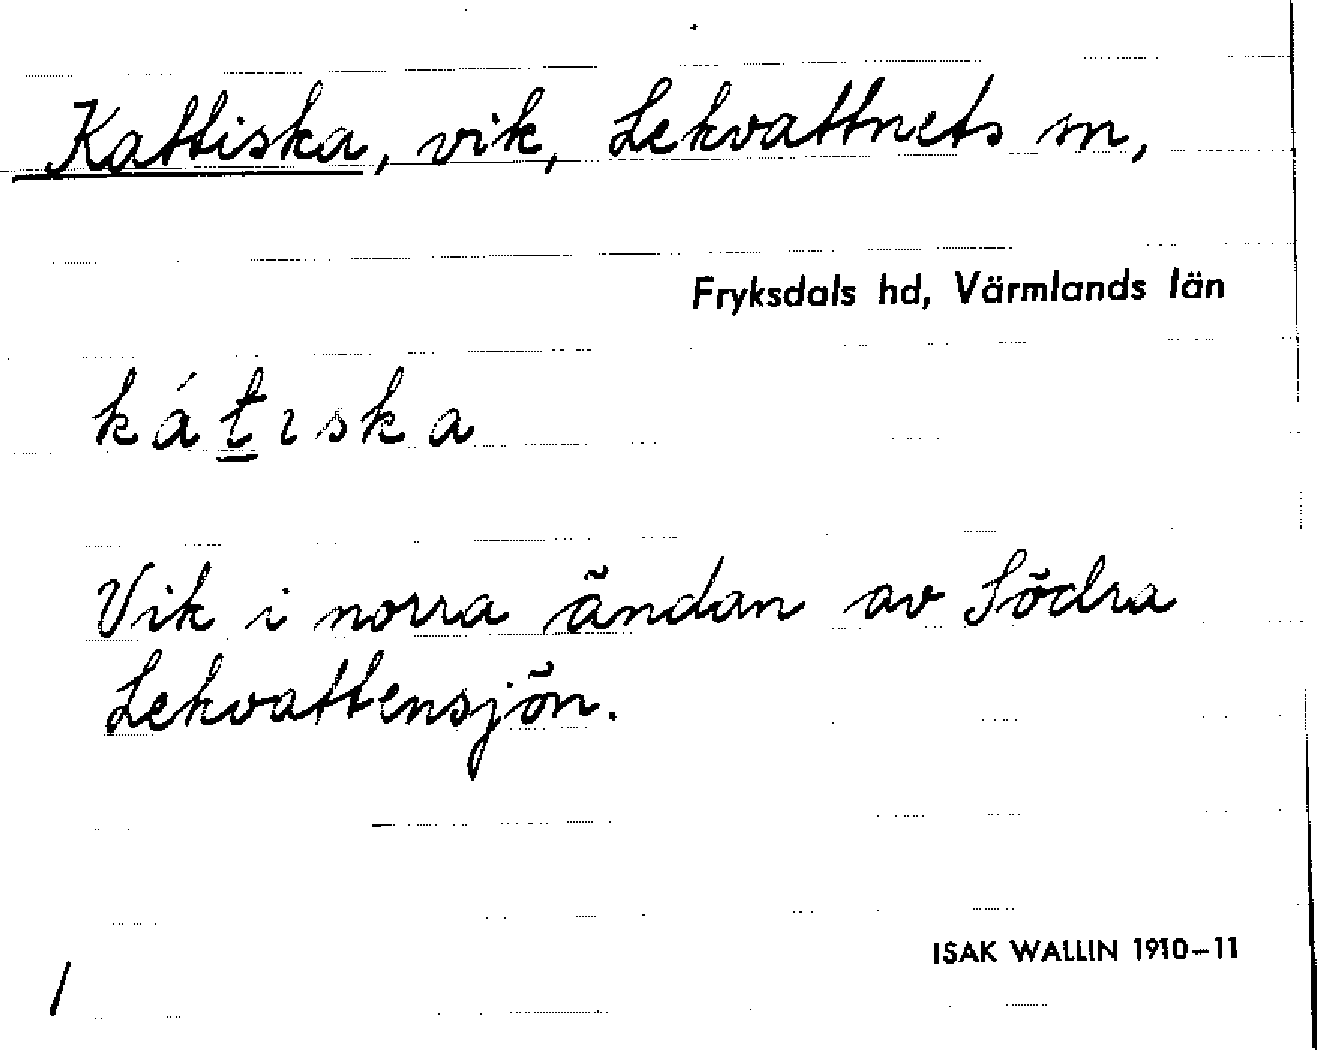 Kattiska, vik, Lekvattnets sn,
Fryksdals hd, Värmlands län
kátıska
Vik i norra ändan av Södra
Lekvattensjön.
ISAK WALLIN 1910–11
/